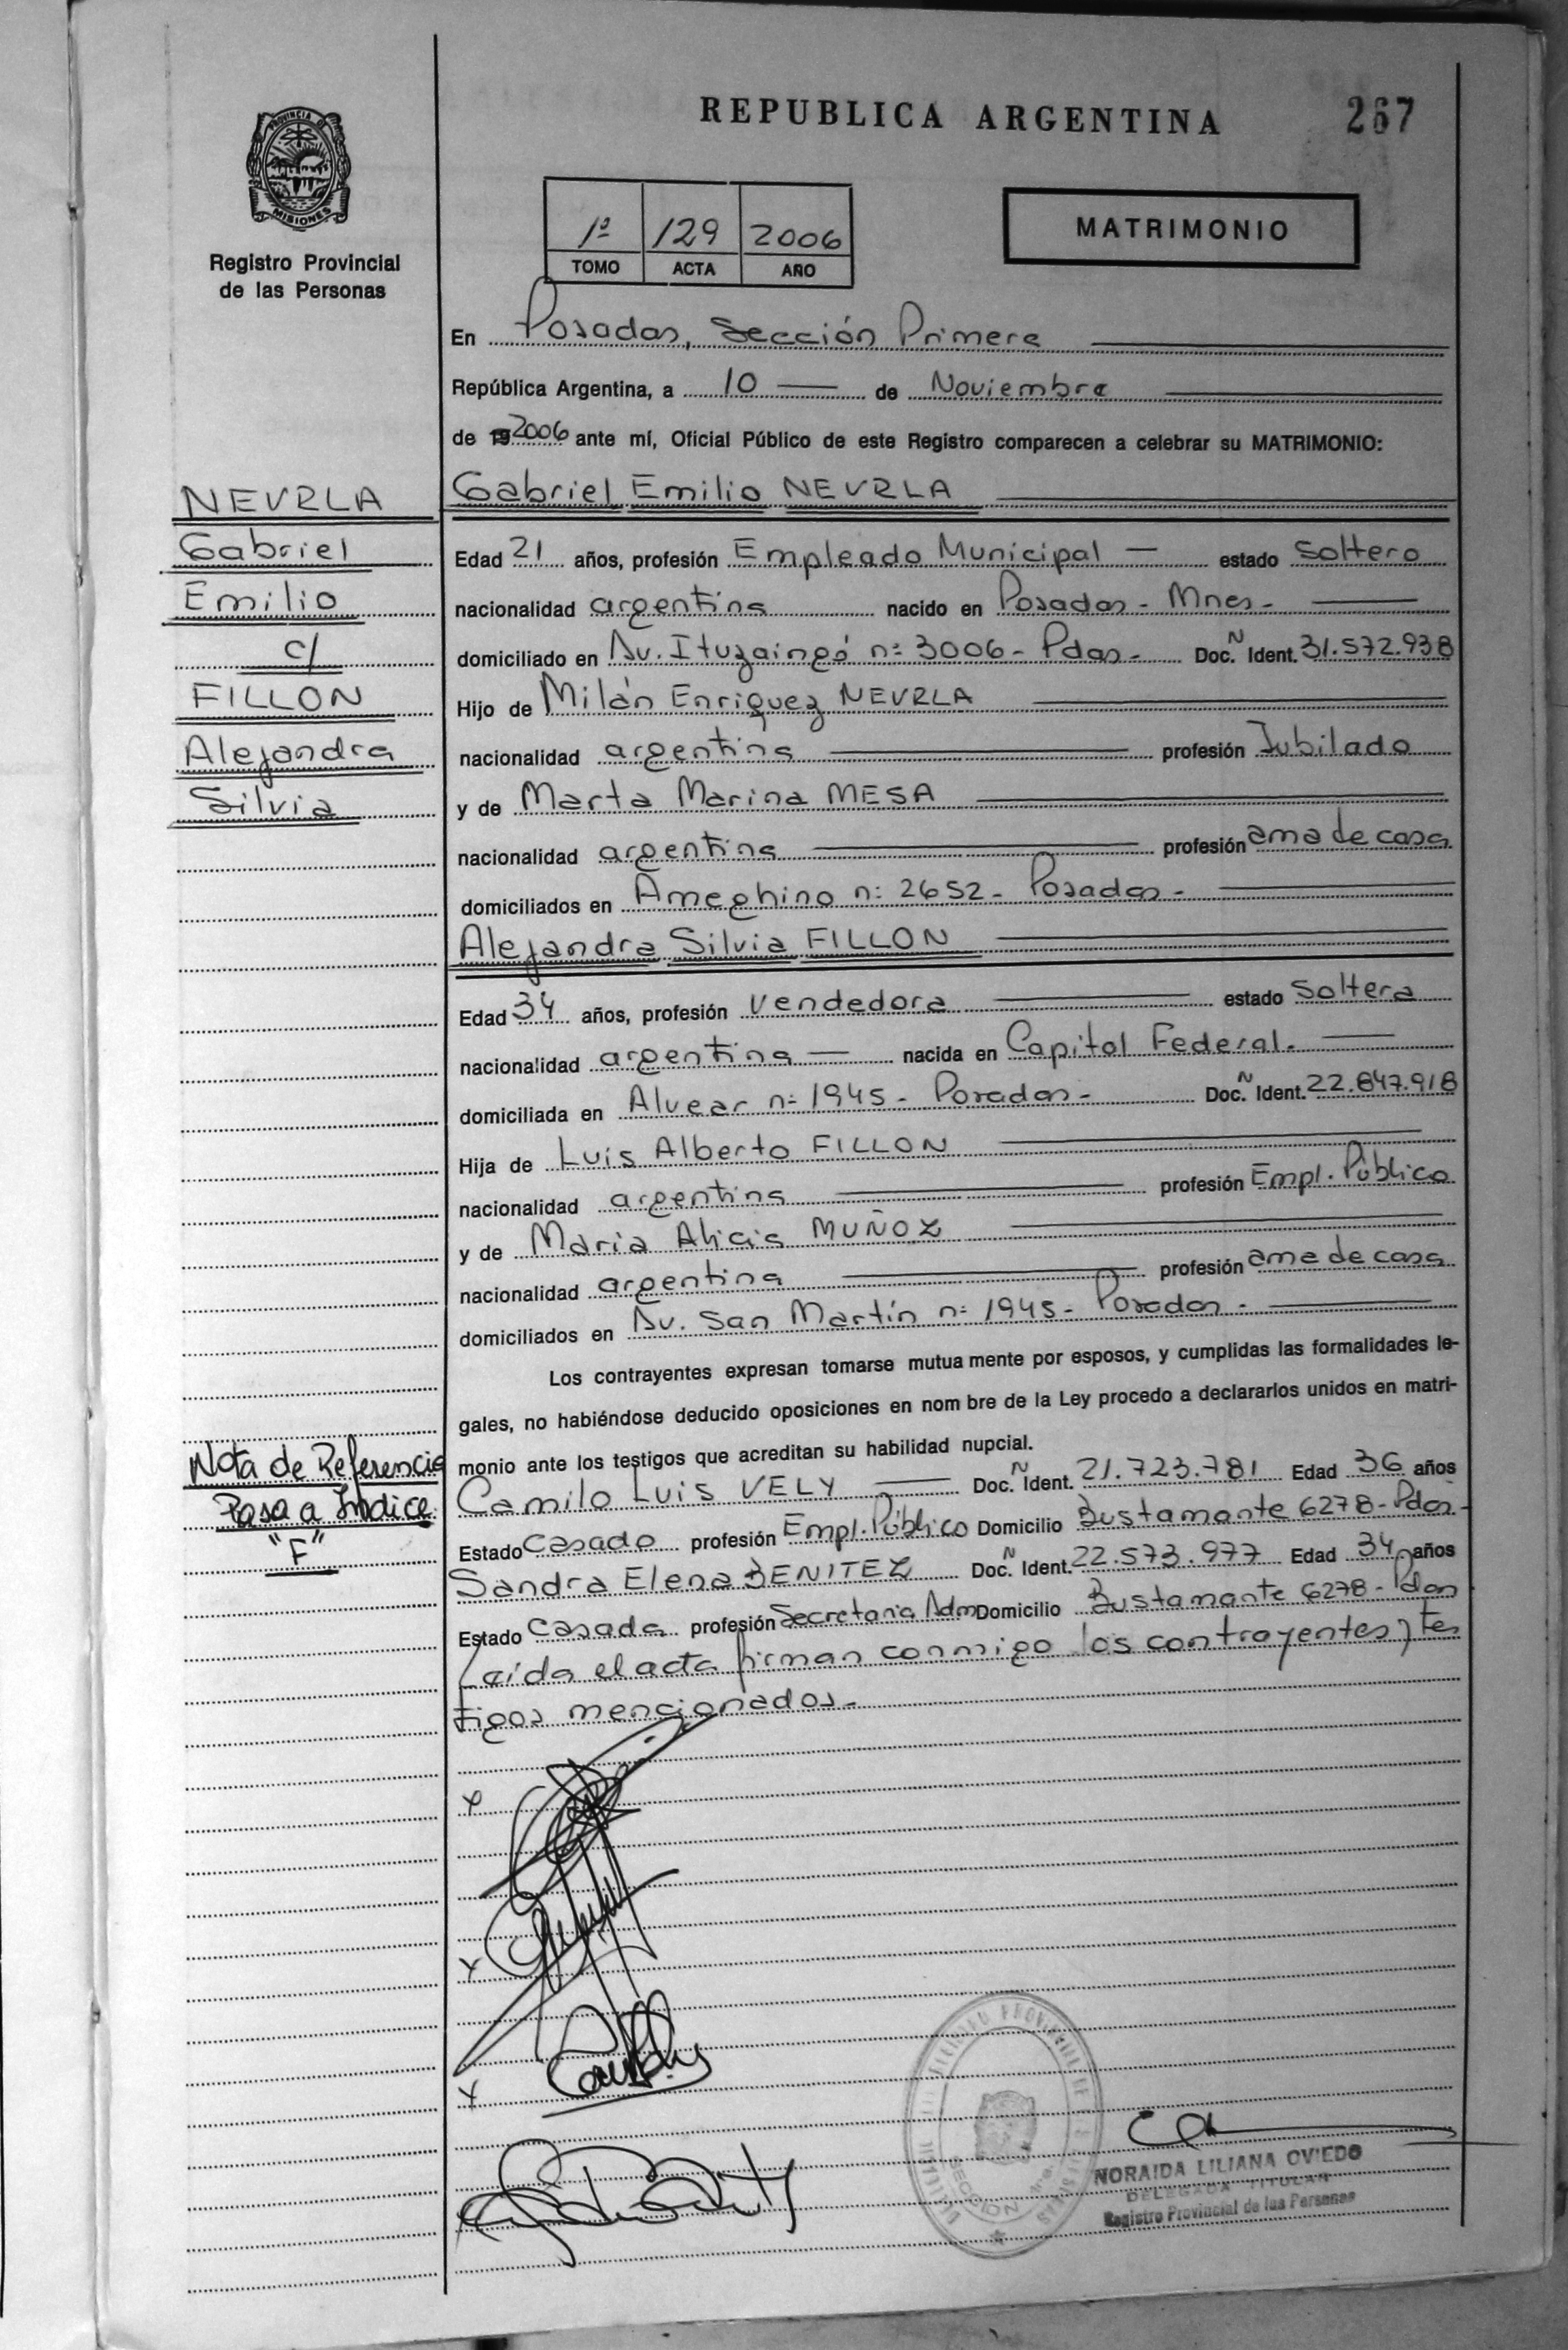 REPUBLICA ARGENTINA
267
PROVINCIA DE
MISIONES
Registro Provincial
de las Personas
1º 129 2006
TOMO ACTA AÑO
MATRIMONIO
En Posadas, Sección Primera
República Argentina, a 10 de Noviembre
de 19 2006 ante mí, Oficial Público de este Registro comparecen a celebrar su MATRIMONIO:
NEVRLA
Gabriel
Emilio
c/
FILLON
Alejandra
Silvia
Gabriel Emilio NEVRLA
Edad 21 años, profesión Empleado Municipal — estado Soltero
nacionalidad argentina nacido en Posadas - Mnes -
domiciliado en Av. Ituzaingó nº 3006 - Pdas - Doc. N Ident. 31.572.938
Hijo de Milán Enriquez NEVRLA
nacionalidad argentina profesión Jubilado
y de Marta Marina MESA
nacionalidad argentina profesión ama de casa
domiciliados en Ameghino nº 2652 - Posadas -
Alejandra Silvia FILLON
Edad 34 años, profesión Vendedora estado Soltera
nacionalidad argentina — nacida en Capital Federal.
domiciliada en Alvear nº 1945 - Posadas - Doc. N Ident. 22.847.918
Hija de Luis Alberto FILLON
nacionalidad argentina profesión Empl. Público
y de Maria Alicia MUÑOZ
nacionalidad argentina profesión ama de casa
domiciliados en Av. San Martín nº 1945 - Posadas -
Los contrayentes expresan tomarse mutua mente por esposos, y cumplidas las formalidades le-
gales, no habiéndose deducido oposiciones en nom bre de la Ley procedo a declararlos unidos en matri-
monio ante los testigos que acreditan su habilidad nupcial.
Nota de Referencia
Pasa a Indice
"F"
Camilo Luis VELY Doc. N Ident. 21.723.781 Edad 36 años
Estado Casado profesión Empl. Público Domicilio Bustamante 6278 - Pdas -
Sandra Elena BENITEZ Doc. N Ident. 22.573.977 Edad 34 años
Estado Casada profesión Secretaria Adm Domicilio Bustamante 6278 - Pdas
Leída el acta firman conmigo los contrayentes y tes
tigos mencionados -
SECCION 1ra.
NORAIDA LILIANA OVIEDO
DELEGADA TITULAR
Registro Provincial de las Personas